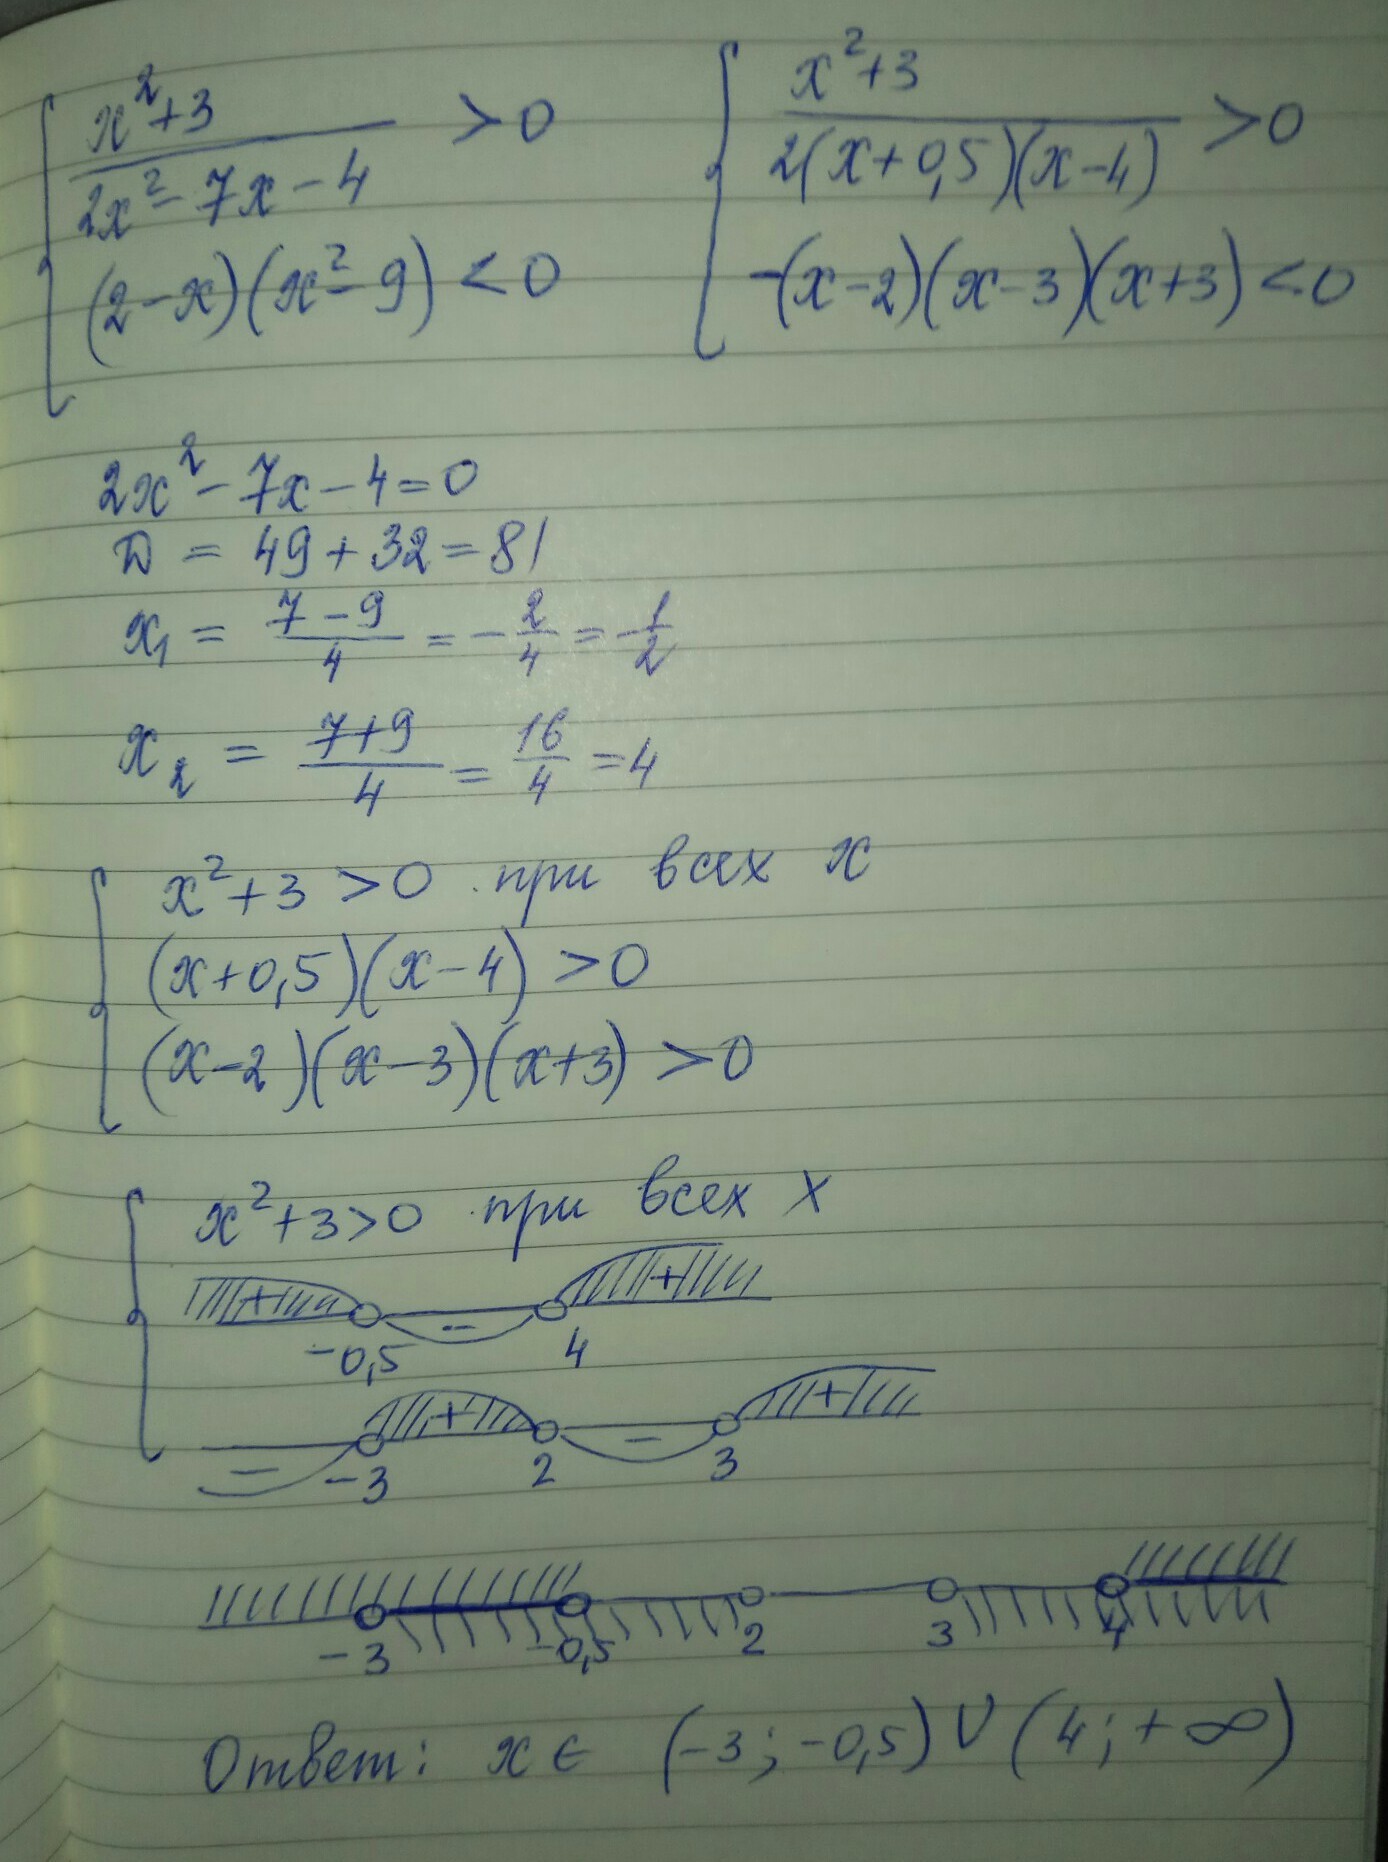 x²+3 / 2x²-7x-4 > 0
(2-x)(x²-9) < 0
x²+3 / 2(x+0,5)(x-4) > 0
-(x-2)(x-3)(x+3) < 0
2x²-7x-4=0
D = 49+32=81
x₁ = 7-9 / 4 = -2/4 = -1/2
x₂ = 7+9 / 4 = 16/4 = 4
x²+3 > 0 при всех x
(x+0,5)(x-4) > 0
(x-2)(x-3)(x+3) > 0
x²+3>0 при всех x
+ - +
-0,5 4
- + - +
-3 2 3
-3 -0,5 2 3 4
Ответ: x ∈ (-3; -0,5) ∪ (4; +∞)